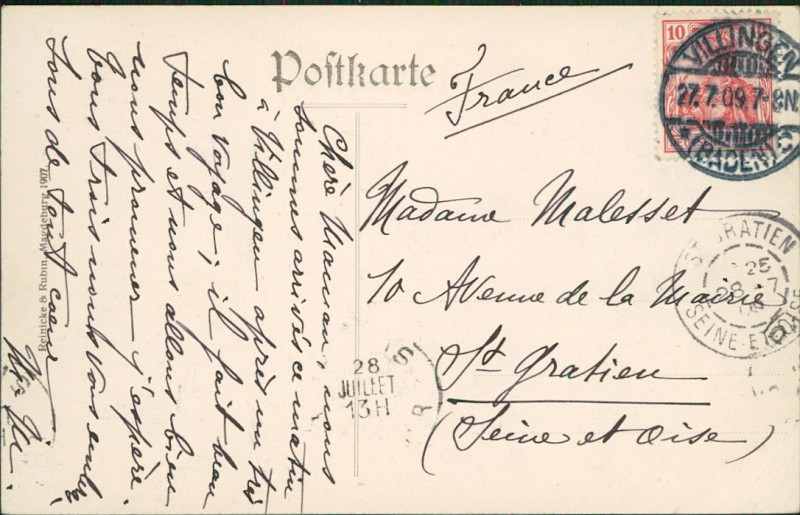 Postkarte
France
10
VILLINGEN
27.7.09.7-8N.
(BADEN)
Madame Malesset
10 Avenue de la Mairie
St Gratien
(Seine et Oise)
ST GRATIEN
25
28 7
09
SEINE-ET-OISE
28
JUILLET
13H
Chère Maman, nous
sommes arrivés ce matin
à Villingen après un très
bon voyage; il fait beau
temps et nous allons bien
nous promener j'espère.
tous trois nous vous
tous de tout coeur
Reinicke & Rubin, Magdeburg 1907.